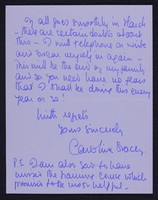 If all goes smoothly in March
- there are certain doubts about
this - I will telephone or write
and
again -
This will be the end of my family
and so you need have no fears
that I shall be doing this every
year or so!
With regrets
Yours Sincerely
Caroline
P.S. I am also sad to have
missed the training course which
promises to be most helpful.